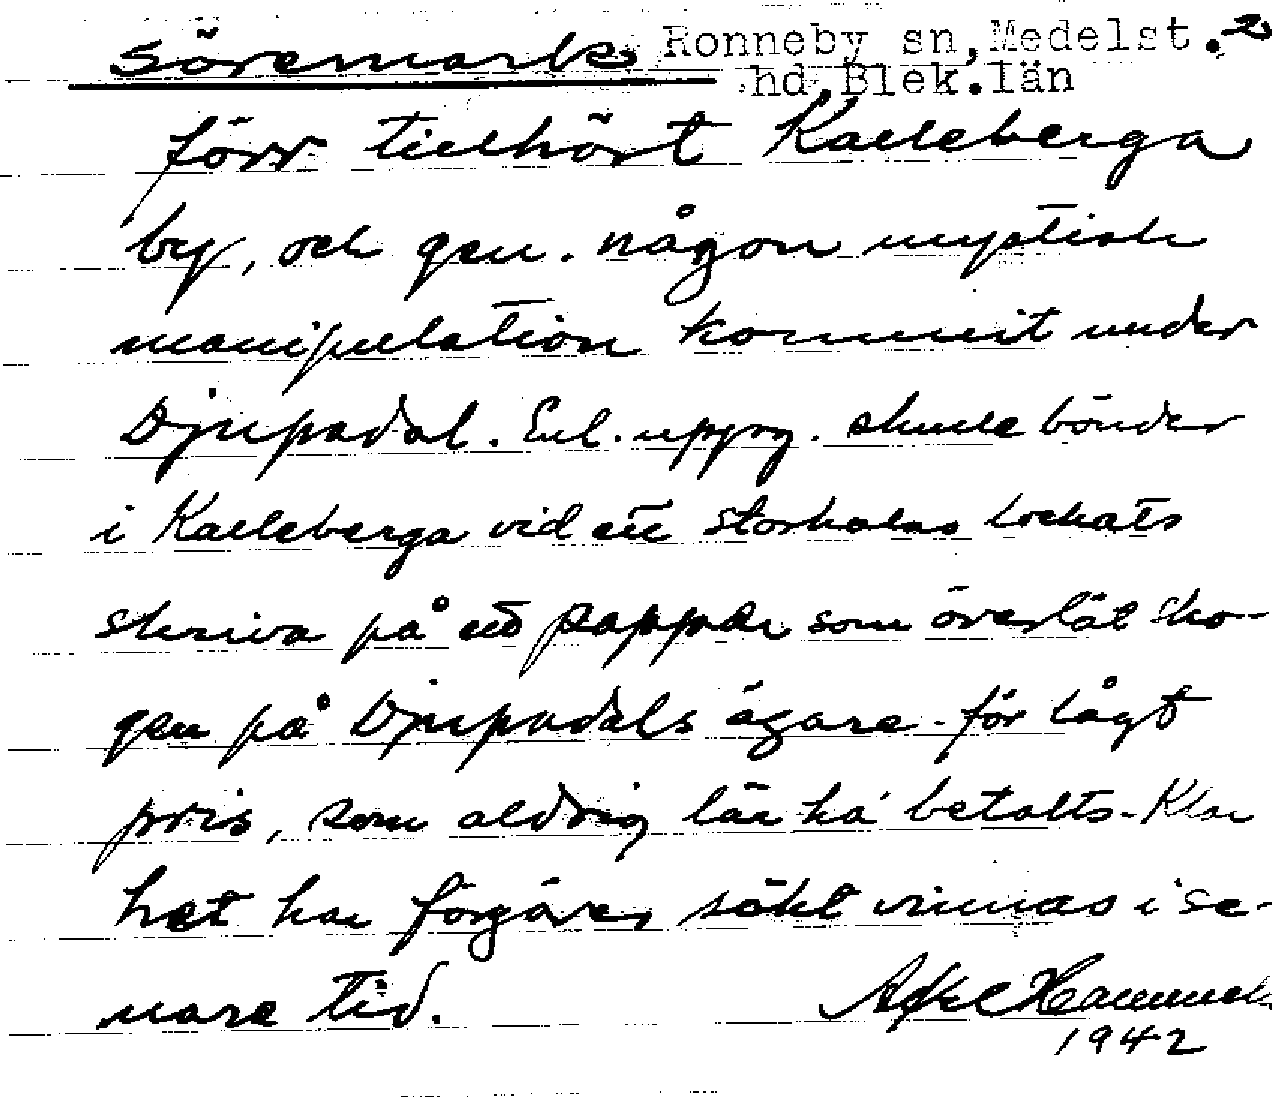 Söremark Ronneby sn, Medelst. 2
hd, Blek. län
förr tillhört Kalleberga
by, och gen. någon mystisk
manipulation kommit under
Djupadal. Enl. uppg. skulle bönder
i Kalleberga vid ett storkalas lockats
skriva på ett papper som överlät sko-
gen på Djupadals ägare - för lågt
pris, som aldrig lär ha betalts. Klar
het har förgäves sökt vinnas i se-
nare tid.
1942